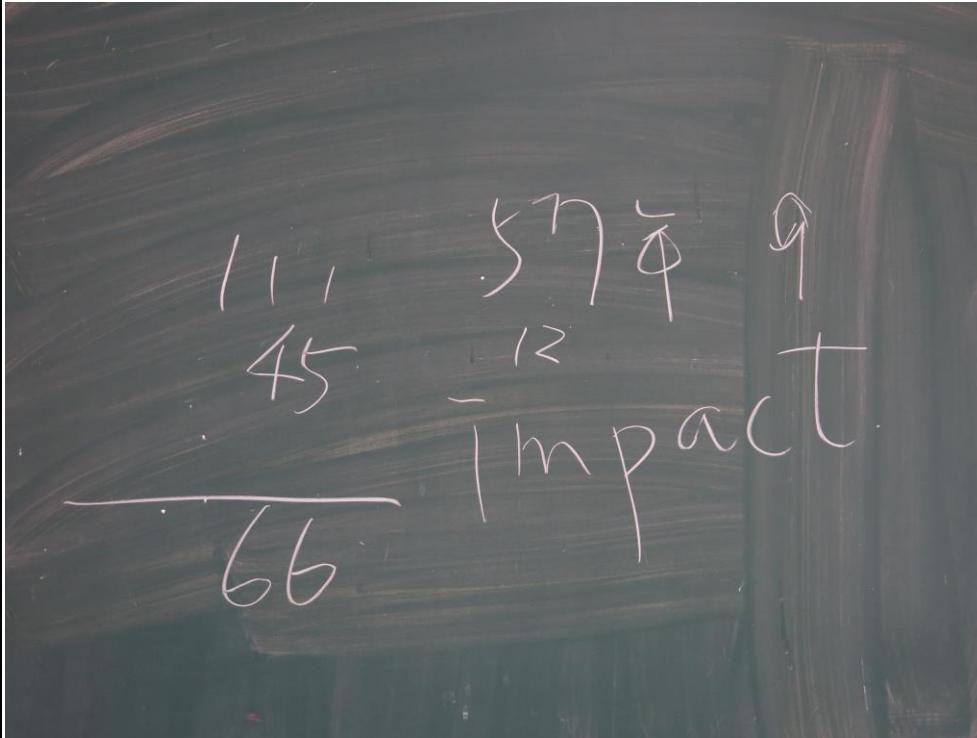 111
45
66
57
12
impact